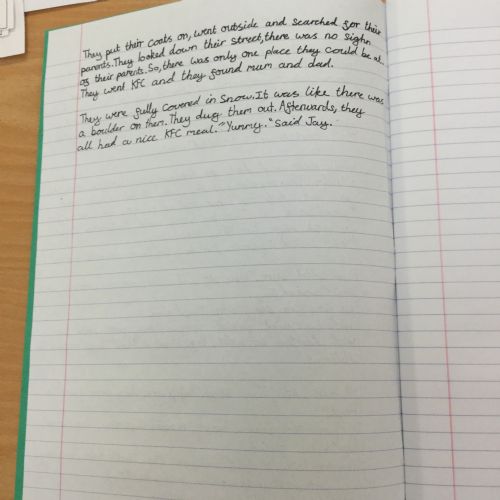 They put their coats on, went outside and searched for their
parents. They looked down their street, there was no sighn
of their parents. So, there was only one place they could be at.
They went KFC and they found mum and dad.
They were fully covered in snow. It was like there was
a boulder on them. They dug them out. Afterwards, they
all had a nice KFC meal. "Yummy." Said Jay.